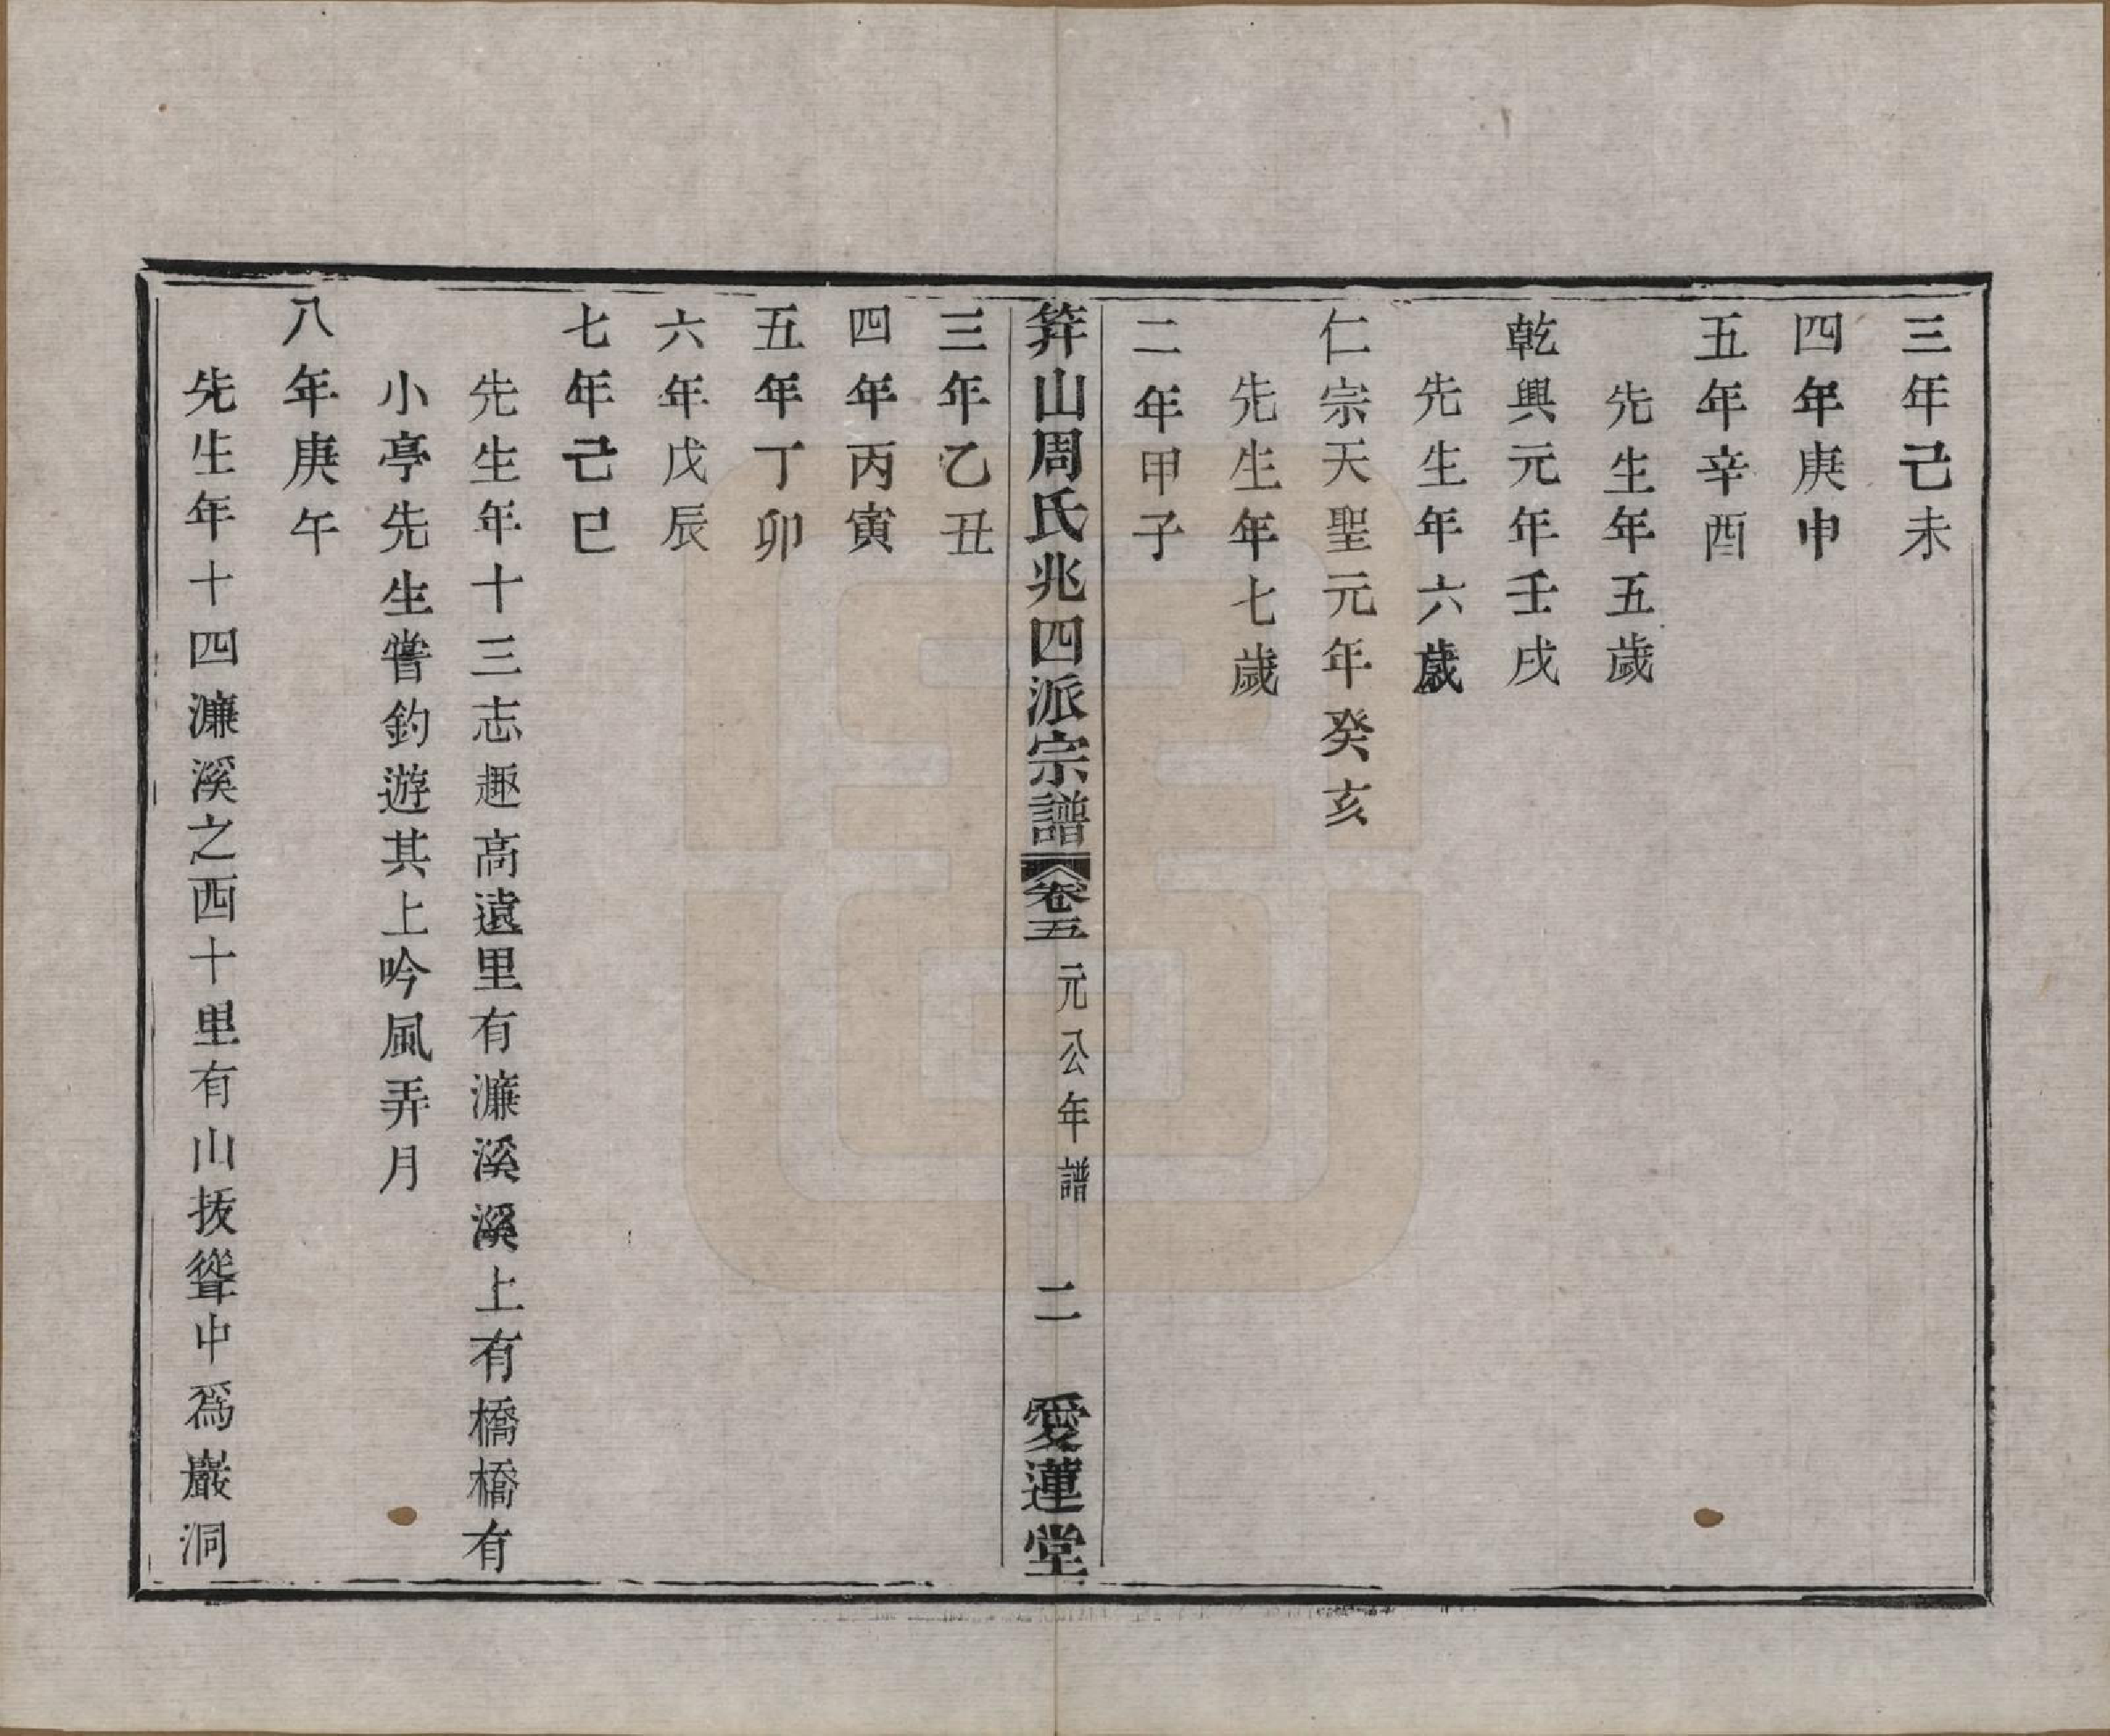 三年己未
四年庚申
五年辛酉
先生年五歲
乾興元年壬戌
先生年六歲
仁宗天聖元年癸亥
先生年七歲
二年甲子
筭山周氏兆四派宗譜 卷五 元公年譜 二 愛蓮堂
三年乙丑
四年丙寅
五年丁卯
六年戊辰
七年己巳
先生年十三志趣高遠里有濂溪溪上有橋橋有
小亭先生嘗釣遊其上吟風弄月
八年庚午
先生年十四濂溪之西十里有山拔聳中爲巖洞